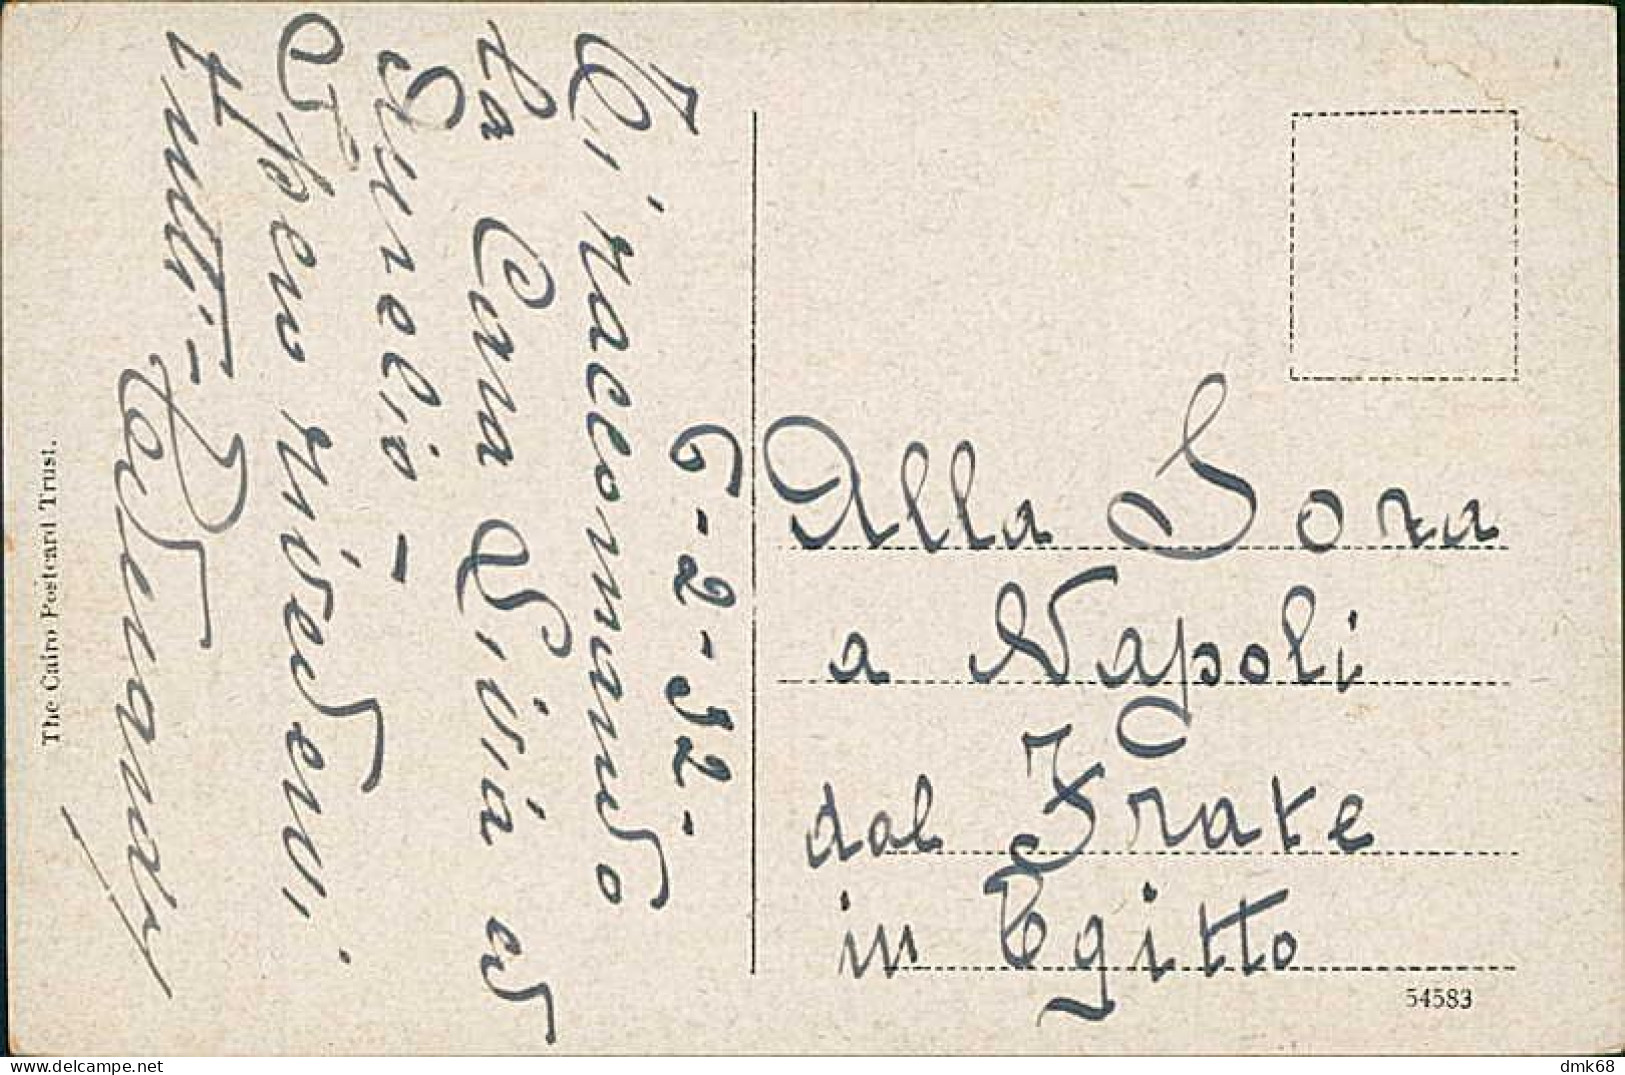 6-2-32-
Ti raccomando
la Cara Livia ed
Aurelio -
Spero rivedervi
tutti -
The Cairo Postcard Trust.
Alla Sora
a Napoli
dal Frate
in Egitto
54583
dmk68